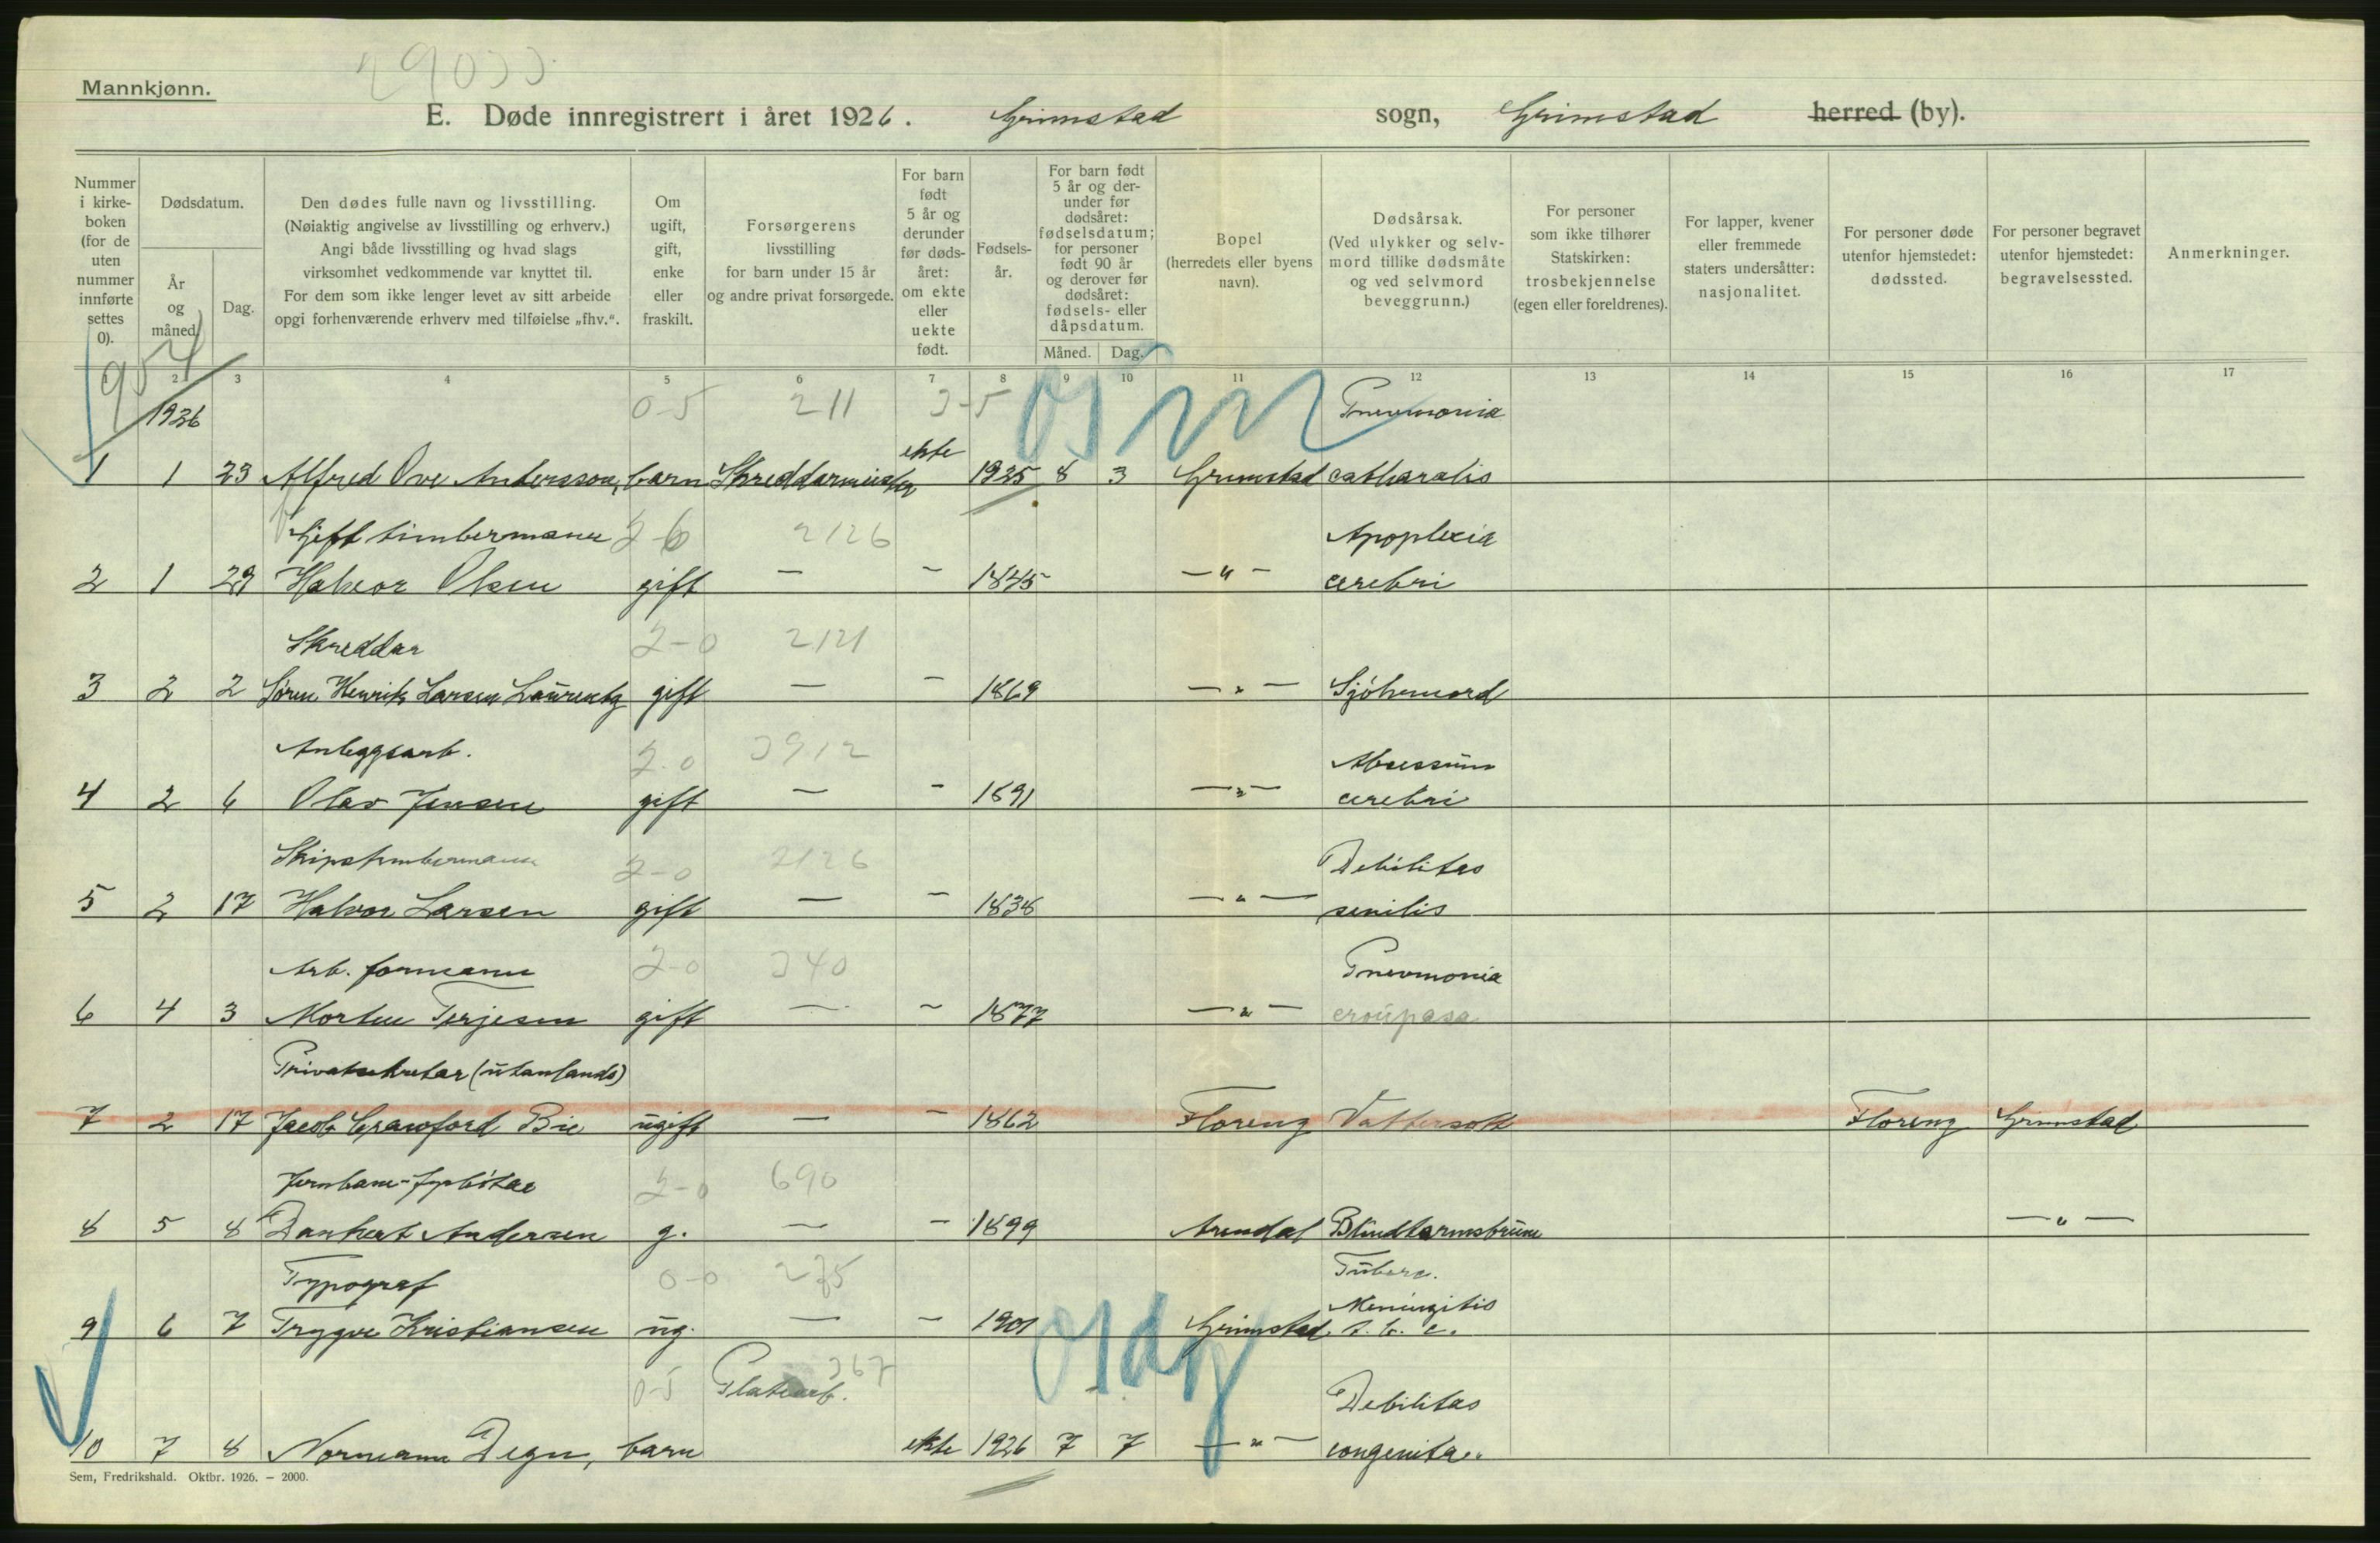 29033
Mannkjønn.
E. Døde innregistrert i året 1926. Grimstad sogn, Grimstad herred (by).
Nummer i kirkeboken (for de uten nummer innførte settes 0).
Dødsdatum.
År og måned.
Dag.
Den dødes fulle navn og livsstilling.
(Nøiaktig angivelse av livsstilling og erhverv.)
Angi både livsstilling og hvad slags
virksomhet vedkommende var knyttet til.
For dem som ikke lenger levet av sitt arbeide
opgi forhenværende erhverv med tilføielse „fhv.“.
Om ugift, gift, enke eller fraskilt.
Forsørgerens
livsstilling
for barn under 15 år
og andre privat forsørgede.
For barn født 5 år og derunder før dødsåret: om ekte eller uekte født.
Fødselsår.
For barn født 5 år og derunder før dødsåret: fødselsdatum; for personer født 90 år og derover før dødsåret: fødsels- eller dåpsdatum.
Måned. Dag.
Bopel
(herredets eller byens
navn).
Dødsårsak.
(Ved ulykker og selvmord tillike dødsmåte
og ved selvmord
beveggrunn.)
For personer
som ikke tilhører
Statskirken:
trosbekjennelse
(egen eller foreldrenes).
For lapper, kvener
eller fremmede
staters undersåtter:
nasjonalitet.
For personer døde
utenfor hjemstedet:
dødssted.
For personer begravet
utenfor hjemstedet:
begravelsessted.
Anmerkninger.
1 2 3 4 5 6 7 8 9 10 11 12 13 14 15 16 17
1926 0-5 211 3-5 Pnevmonia
1 1 23 Alfred Ove Andersson, barn Skreddarmeister ekte 1925 8 3 Grimstad catharalis
Gift timbermann 2-6 2126 Apoplexia
2 1 29 Halvor Olsen gift — - 1845 —"— cerebri
Skreddar 2-0 2121
3 2 2 Søren Henrik Larsen Laurentz gift — - 1869 —"— Sjølvmord
Anleggsarb. 2-0 3912 Absessus
4 2 6 Olav Jensen gift — - 1891 —"— cerebri
Skipstimbermann 2-0 2126 Debilitas
5 2 17 Halvor Larsen gift — - 1838 —"— senilis
Arb. formann 2-0 340 Pnevmonia
6 4 3 Morten Terjesen gift — - 1877 —"— croupasa
Privatsekretær (utanlands)
7 2 17 Jacob Crawford Bie ugift — - 1862 Florenz Vattersott Florenz Grimstad
Jernbane- 2-0 690
8 5 8 Dankert Andersen g. — - 1899 Arendal Blindtarmsbrune —"—
Typograf 0-0 275 Tuberc.
Meningitis
9 6 7 Trygve Kristiansen ug. — - 1901 Grimstad t. b. c.
0-5 Platearb. 367 Debilitas
10 7 8 Normann Degn, barn ekte 1926 7 7 —"— congenita.
Sem, Fredrikshald. Oktbr. 1926. – 2000.